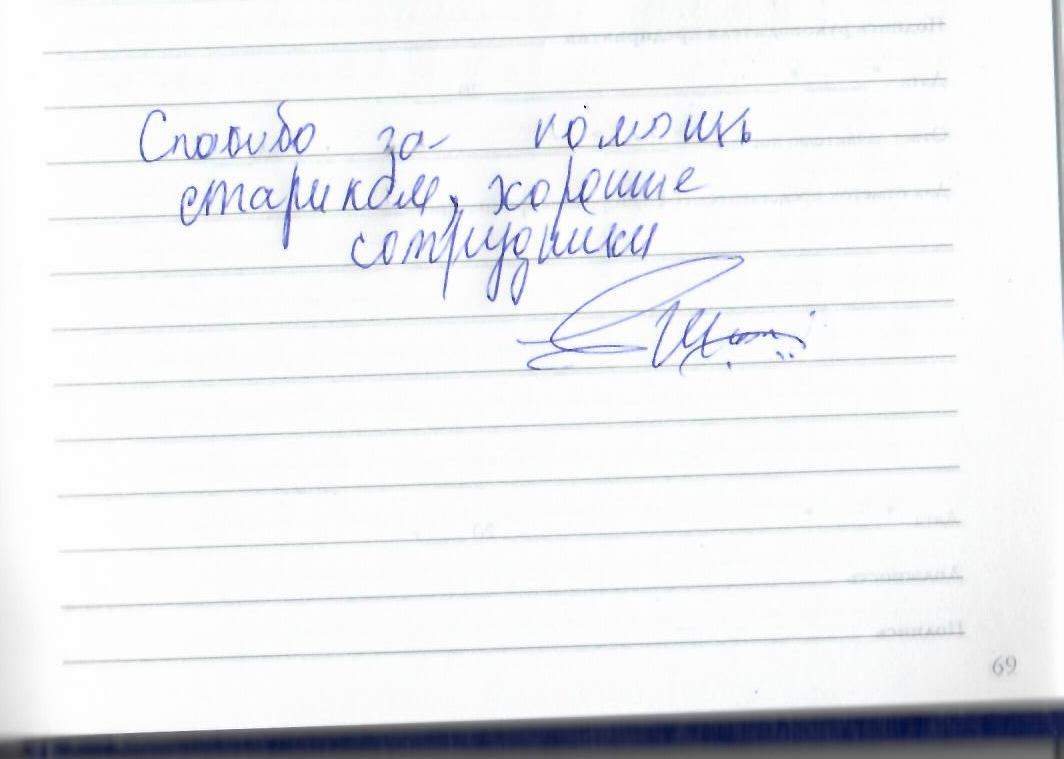 Спасибо за помощь
старикам, хорошие
сотрудники
69